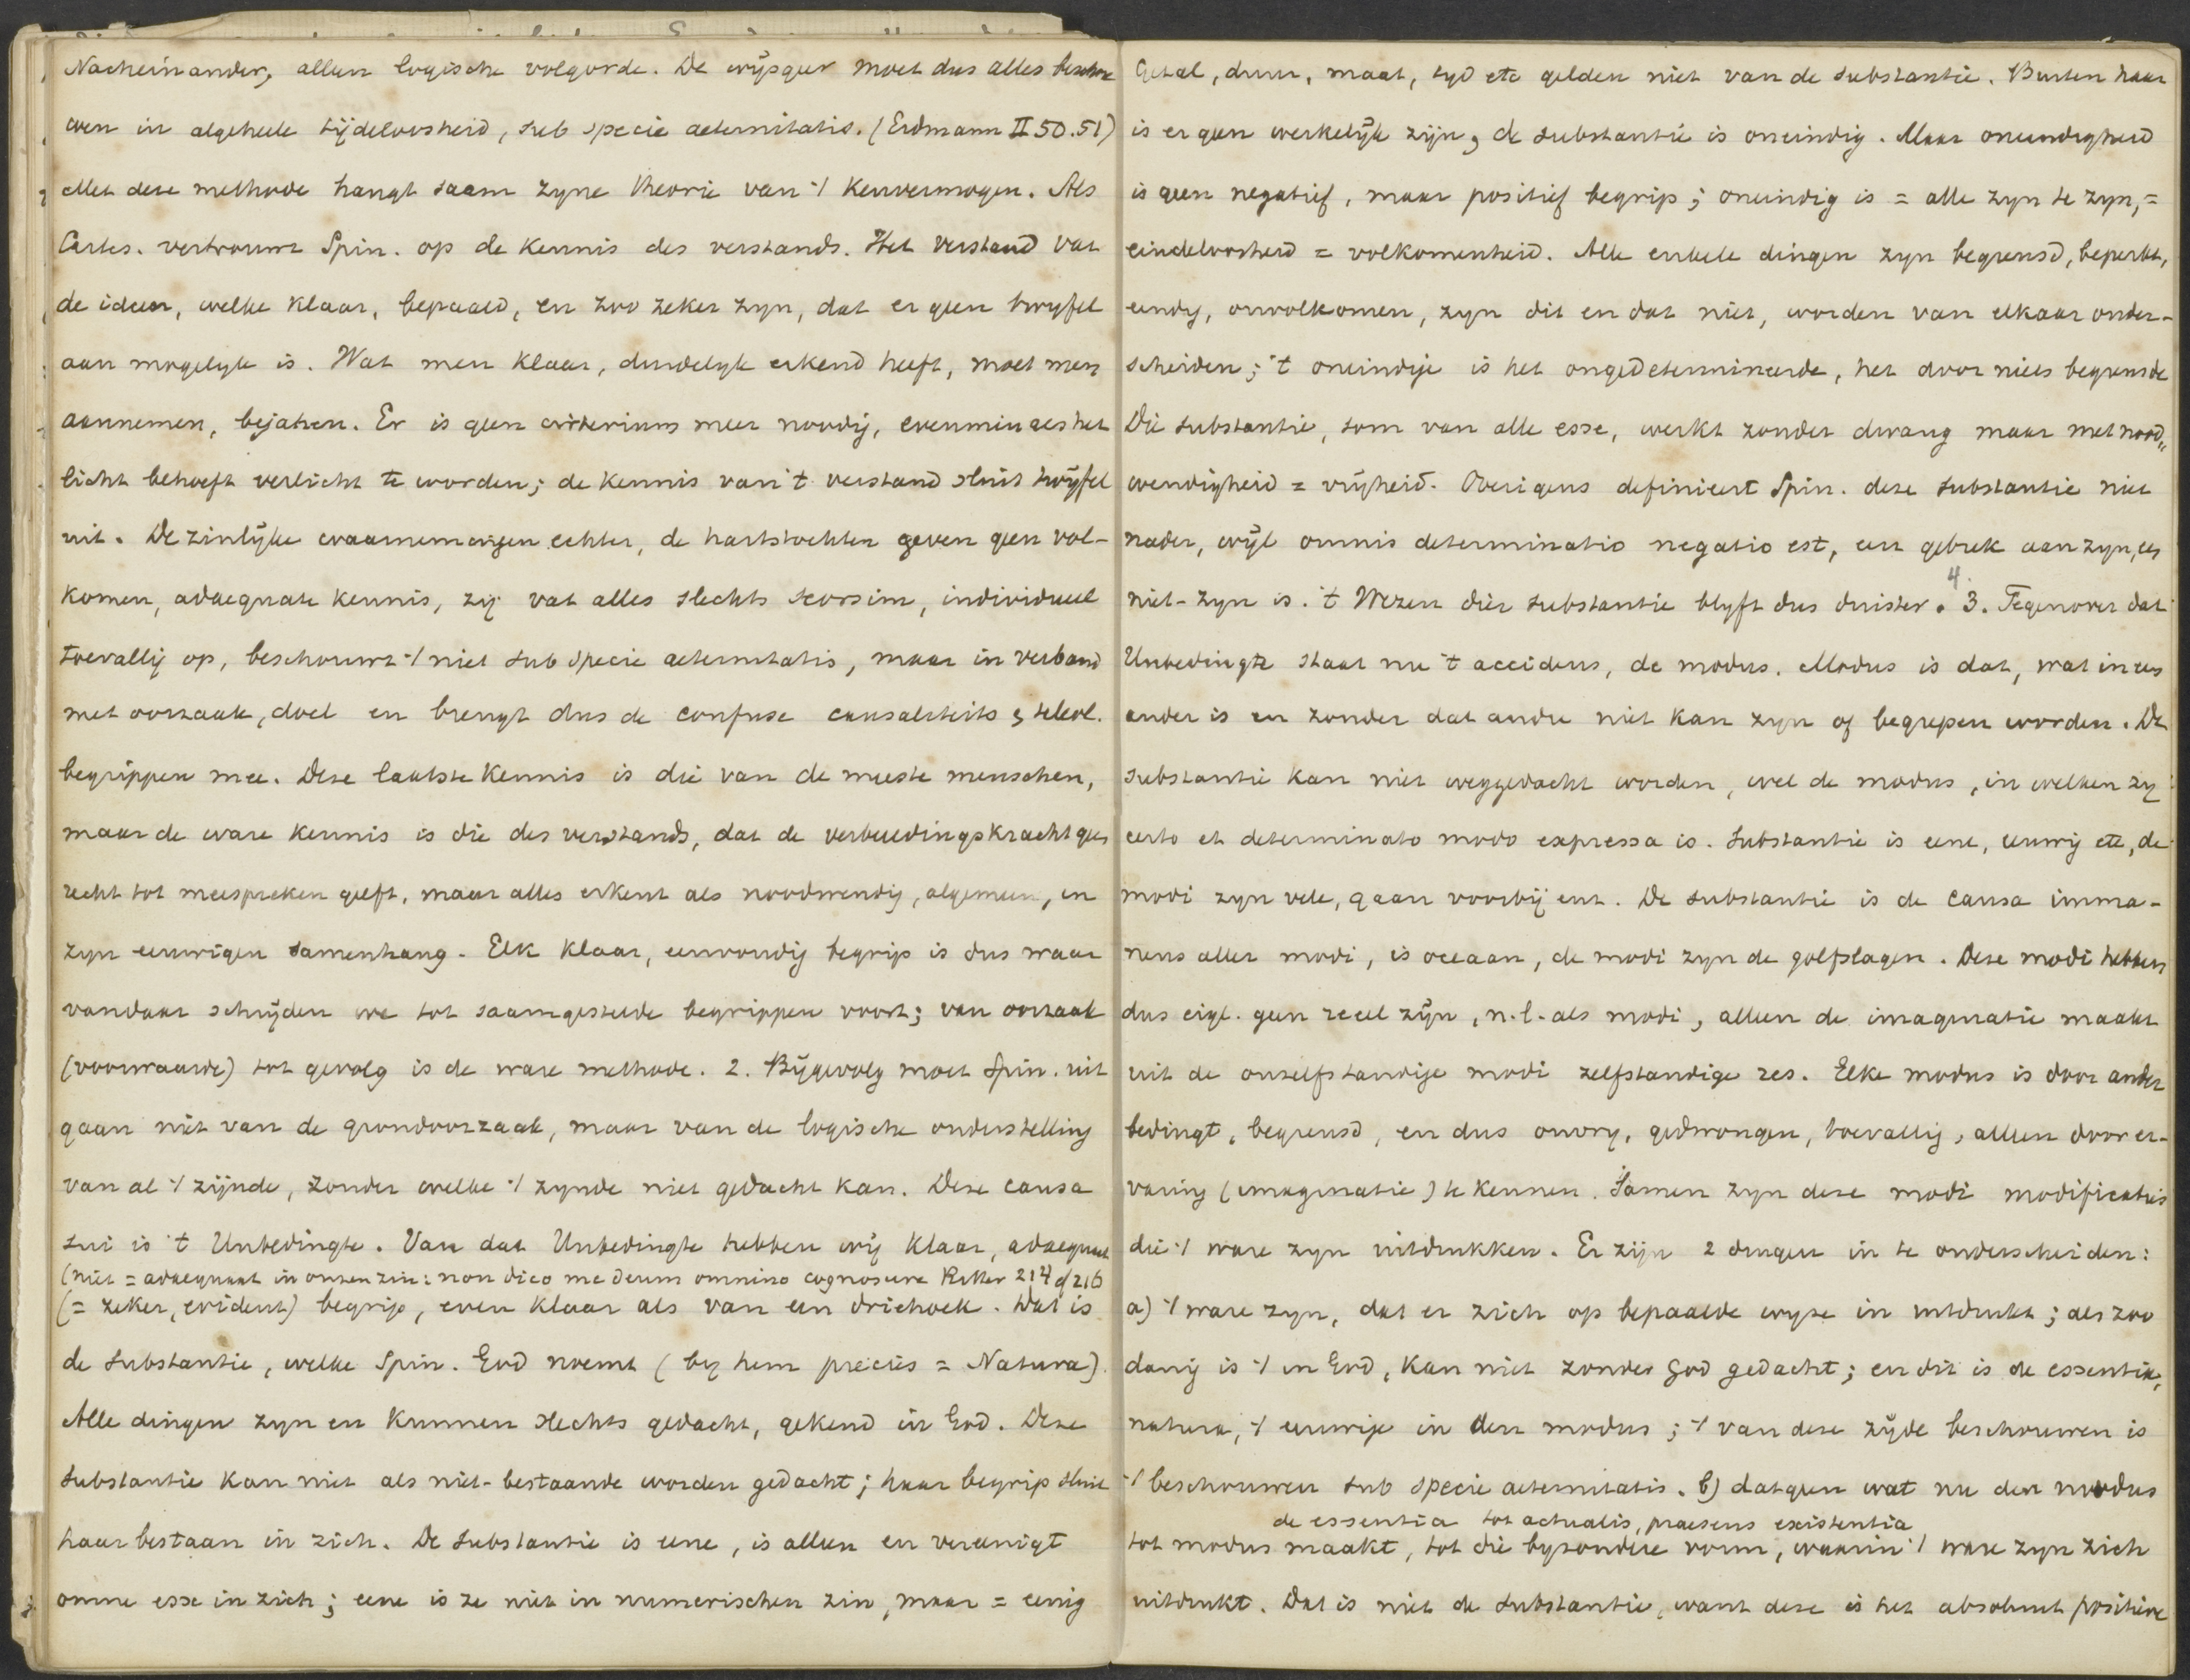 Nacheinander, alleen logische volgorde. De wijsgeer moet dus alles beschou
wen in algeheele tijdeloosheid, sub specie aeternitatis. (Erdmann II 50.51)
Met deze methode hangt saam zyne theorie van 't Kenvermogen. Als
Cartes. vertrouwt Spin. op de kennis des verstands. Het verstand vat
de ideen, welke klaar, bepaald, en zoo zeker zyn, dat er geen twyfel
aan mogelyk is. Wat men klaar, duidelyk erkend heeft, moet men
aannemen, bejahen. Er is geen criterium meer noodig, evenmin als het
licht behoeft verlicht te worden; de kennis van 't verstand sluit twijfel
uit. De zinlijke waarnemingen echter, de hartstochten geven geen vol-
komen, adaequate kennis, zij vat alles slechts seorsim, individueel
toevallig op, beschouwt 't niet sub specie aeternitatis, maar in verband
met oorzaak, doel en brengt dus de confuse causaliteits & teleol.
begrippen mee. Deze laatste kennis is die van de meeste menschen,
maar de ware kennis is die des verstands, dat de verbeeldingskracht geen
recht tot meespreken geeft, maar alles erkent als noodwendig, algemeen, in
zyn eeuwigen samenhang. Elk klaar, eenvoudig begrip is dus waar
vandaar schrijden we tot saamgestelde begrippen voort; van oorzaak
(voorwaarde) tot gevolg is de ware methode. 2. Bijgevolg moet Spin. uit
gaan niet van de grondoorzaak, maar van de logische onderstelling
van al 't zijnde, zonder welke 't zynde niet gedacht kan. Deze causa
sui is 't Unbedingte. Van dat Unbedingte hebben wij klaar, adaequaat
(niet = adaequaat in onzen zin: non dico me deum omnino cognoscere Ritter 214 of 216
(= zeker, evident) begrip, even klaar als van een driehoek. Dat is
de substantie, welke Spin. God noemt (by hem precies = Natura).
Alle dingen zyn en kunnen slechts gedacht, gekend in God. Deze
substantie kan niet als niet-bestaande worden gedacht; haar begrip sluit
haar bestaan in zich. De substantie is eene, is alleen en vereenigt
omne esse in zich; eene is ze niet in numerischen zin, maar = eenig
Getal, duur, maat, tyd etc gelden niet van de substantie. Buiten haar
is er geen werkelijk zijn, de substantie is oneindig. Maar oneindigheid
is geen negatief, maar positief begrip; oneindig is = alle zyn te zyn, =
eindeloosheid = volkomenheid. Alle enkele dingen zyn begrensd, beperkt,
eindig, onvolkomen, zyn dit en dat niet, worden van elkaar onder-
scheiden; 't oneindige is het ongedetermineerde, het door niets begrensde
Die substantie, som van alle esse, werkt zonder dwang maar met nood„
wendigheid = vrijheid. Overigens definieert Spin. deze substantie niet
nader, wijl omnis determinatio negatio est, een gebrek aan zyn, een
niet-zyn is. 't Wezen dier substantie blyft dus duister. 3. 4. Tegenover dat
Unbedingte staat nu 't accidens, de modus. Modus is dat, wat in een
ander is en zonder dat andre niet kan zyn of begrepen worden. De
substantie kan niet weggedacht worden, wel de modus, in welken zy
certo et determinato modo expressa is. Substantie is eene, eeuwig etc, de
modi zyn vele, gaan voorbij enz. De substantie is de causa imma-
nens aller modi, is oceaan, de modi zyn de golfslagen. Deze modi hebben
dus eigl. geen reeel zijn, n.l. als modi, alleen de imaginatie maakt
uit de onzelfstandige modi zelfstandige res. Elke modus is door ander
bedingt, begrensd, en dus onvry, gedwongen, toevallig, alleen door er-
varing (imaginatie) te kennen. Samen zyn deze modi modificaties
die 't ware zyn uitdrukken. Er zijn 2 dingen in te onderscheiden:
a) 't ware zyn, dat er zich op bepaalde wyze in uitdrukt; als zoo
danig is 't in God, kan niet zonder God gedacht; en dit is de essentia,
natura, 't eeuwige in den modus; 't van deze zijde beschouwen is
't beschouwen sub specie aeternitatis. b) datgeen wat nu den modus
de essentia tot actualis, praesens existentia
tot modus maakt, tot die byzondere vorm, waarin 't ware zyn zich
uitdrukt. Dat is niet de substantie, want deze is het absoluut positieve